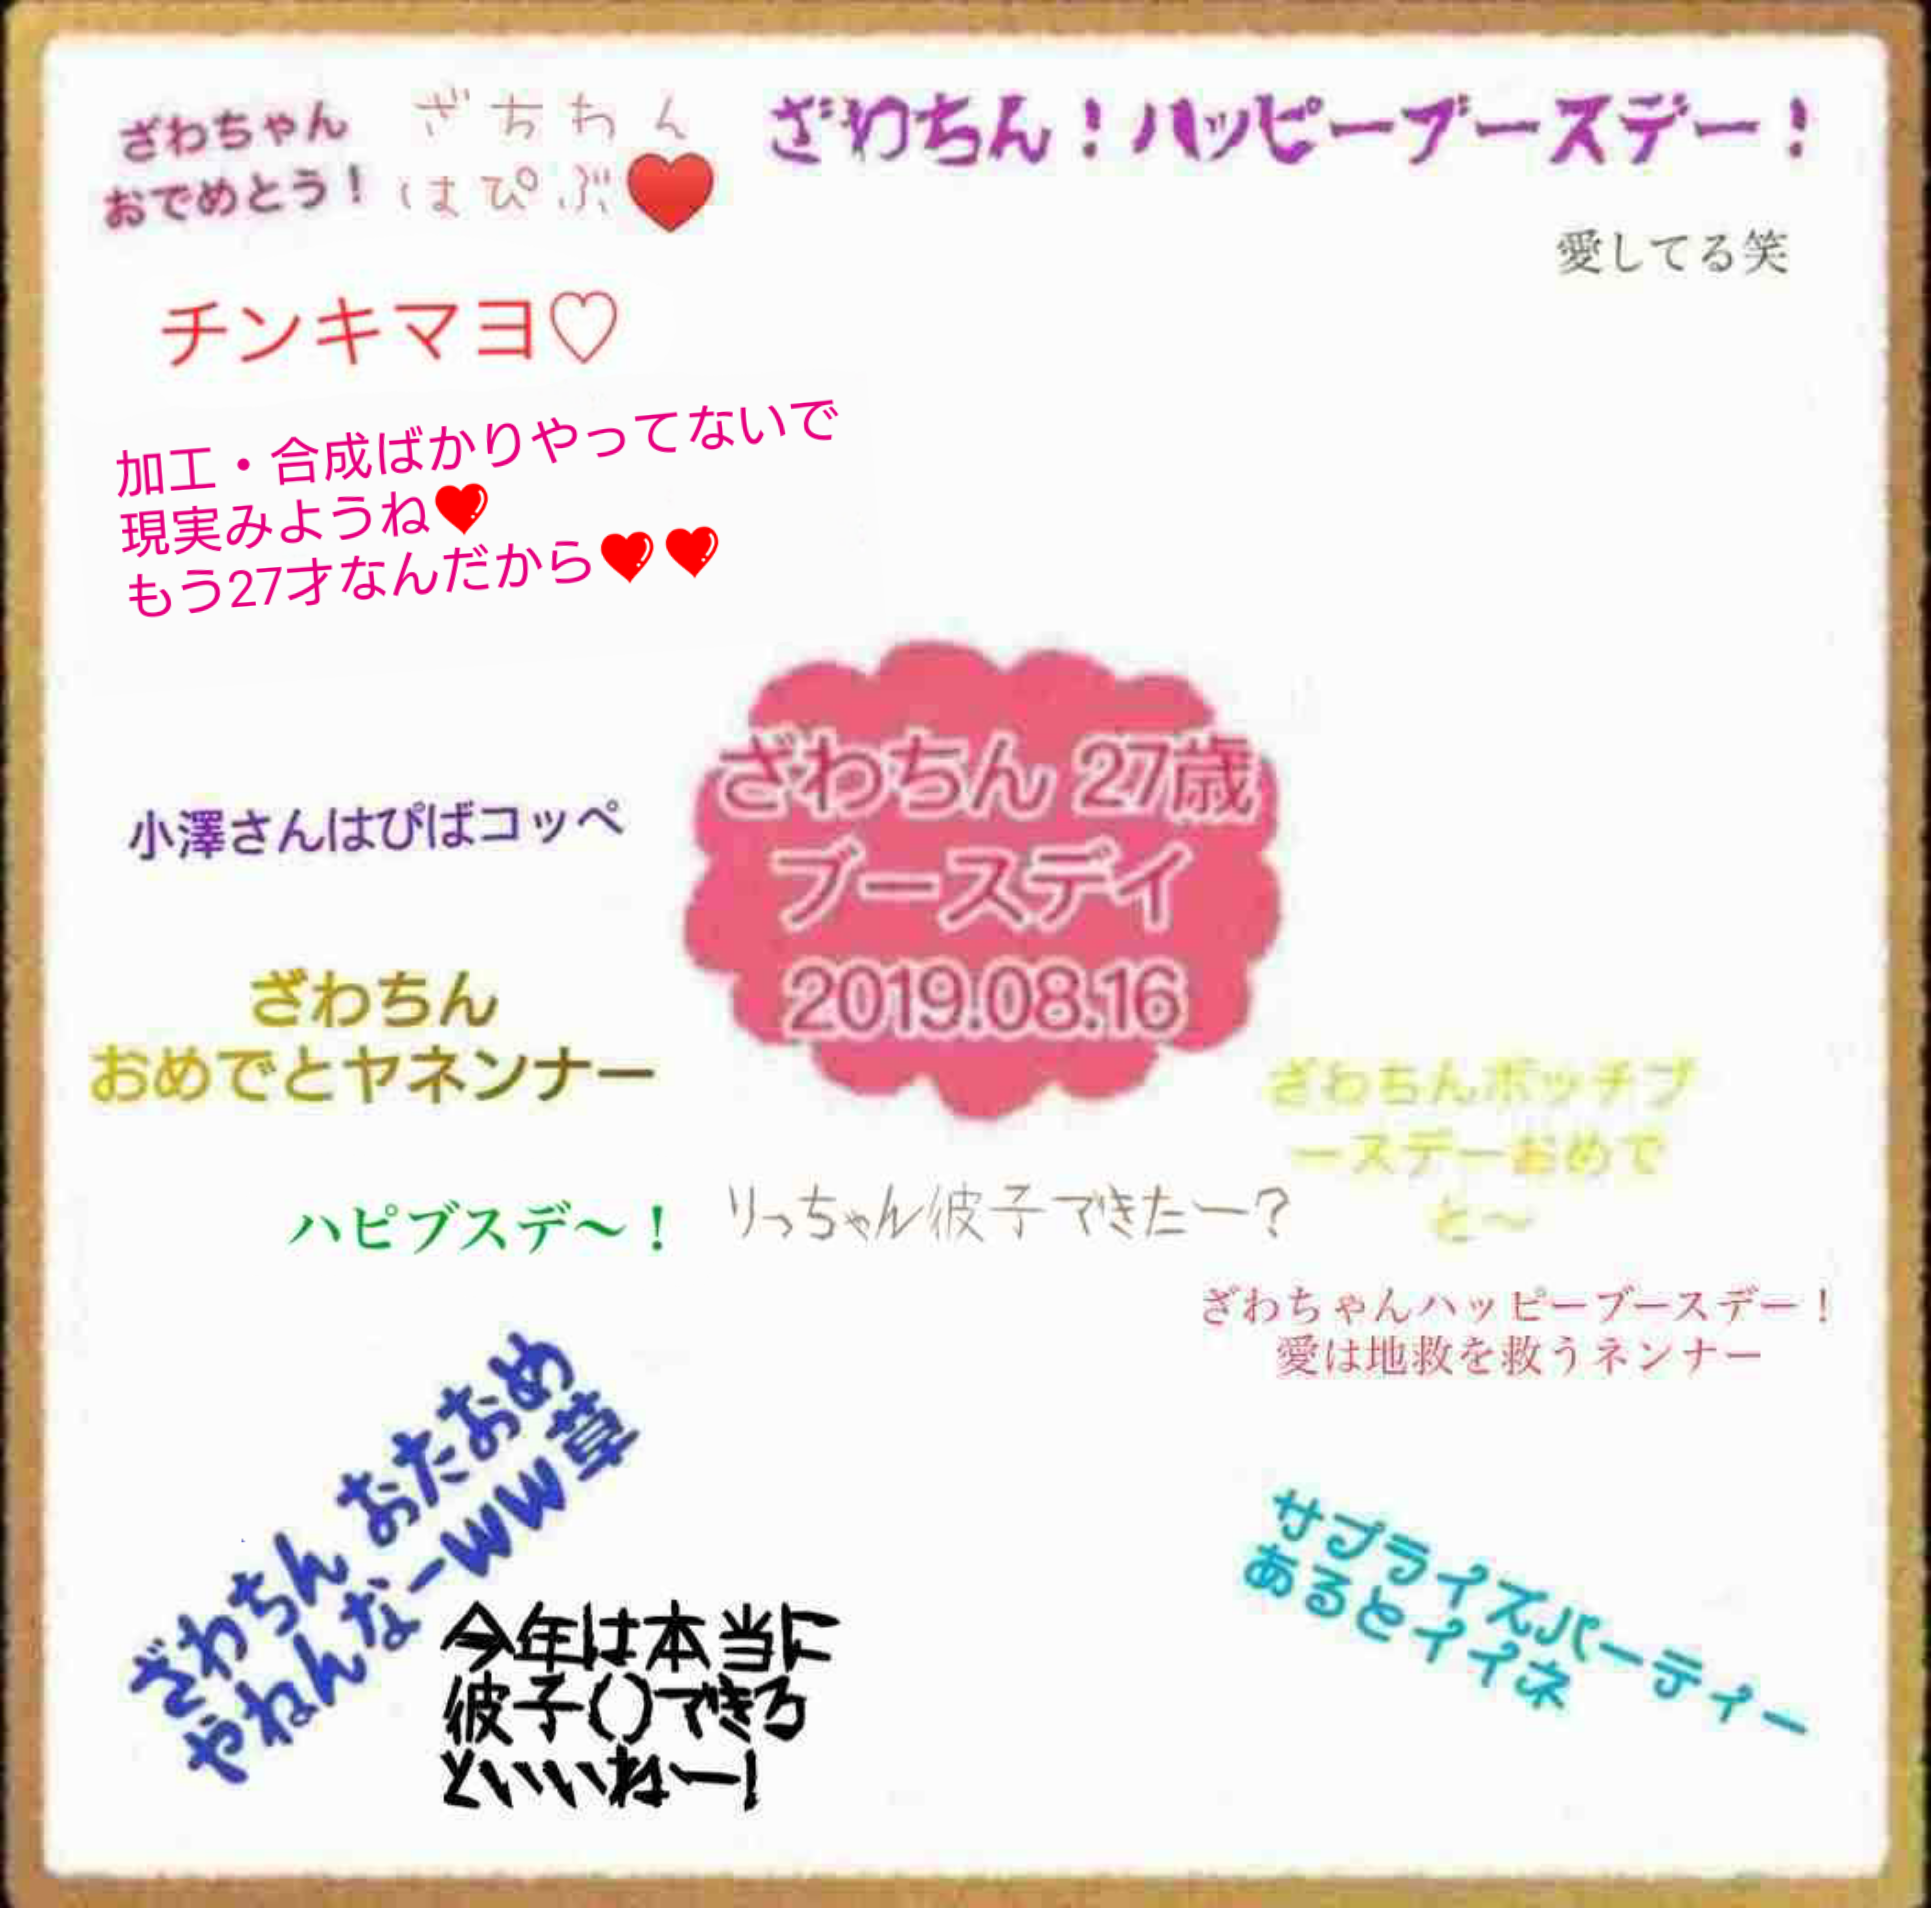 ざわちゃん
おでめとう！
ざちわん
はぴぶ❤
ざわちん！ハッピーブースデー！
愛してる笑
チンキマヨ♡
加工・合成ばかりやってないで
現実みようね❤
もう27才なんだから❤❤
ざわちん 27歳
ブースデイ
2019.08.16
小澤さんはぴばコッペ
ざわちん
おめでとヤネンナー
ざわちんボッチブ
ースデーおめで
と〜
ハピブスデ〜！
りっちゃん彼子できたー？
ざわちゃんハッピーブースデー！
愛は地救を救うネンナー
ざわちん おたおめ
やねんなーWW草
今年は本当に
彼子()できろ
といいねー！
サプライズパーティー
あるとイイネ